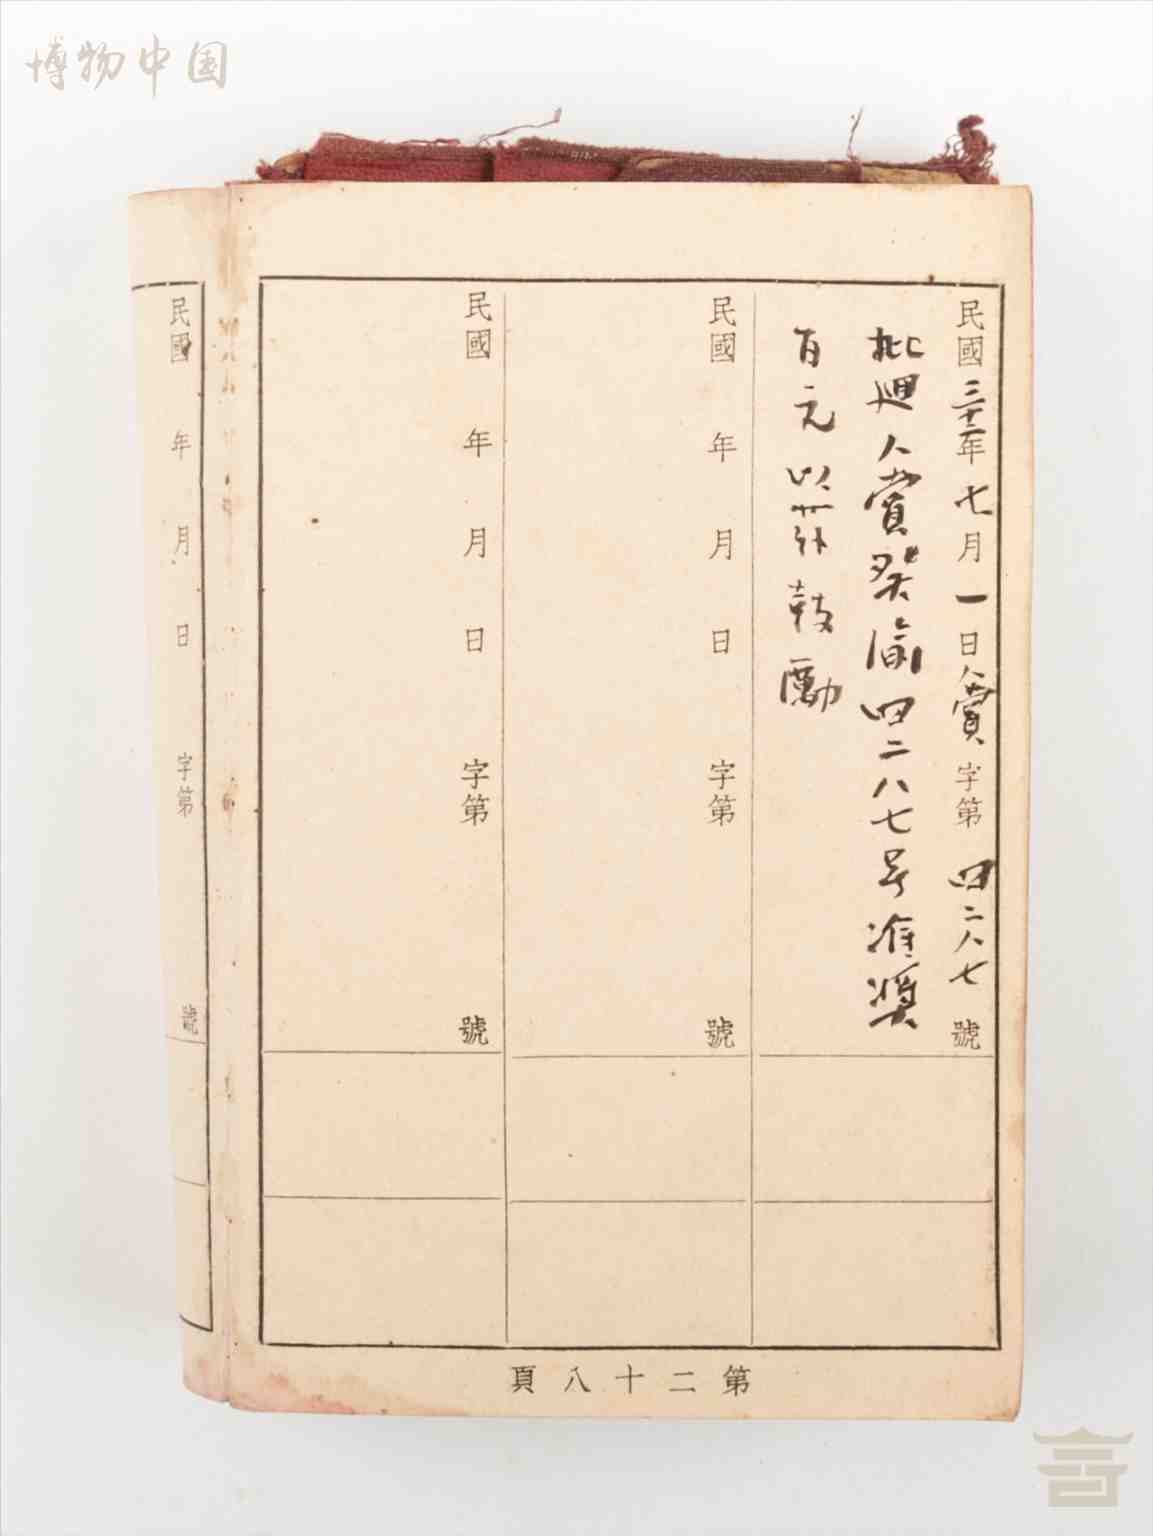 博物中国
民國三十二年七月一日人賞字第四二八七號
批迴人賞癸渝四二八七号准獎
百元以昭鼓勵
民國 年 月 日 字第 號
民國 年 月 日 字第 號
民國 年 月 日 字第 號
第二十八頁